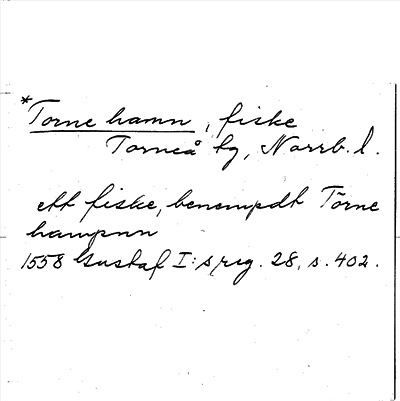 *Torne hamn, fiske
Torneå tg, Norrb. l.
ett fiske, benempdt Törne
hampnn
1558 Gustaf I:s reg. 28, s. 402.